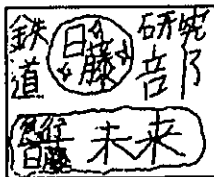 鉄道
日藤
研究部
未来